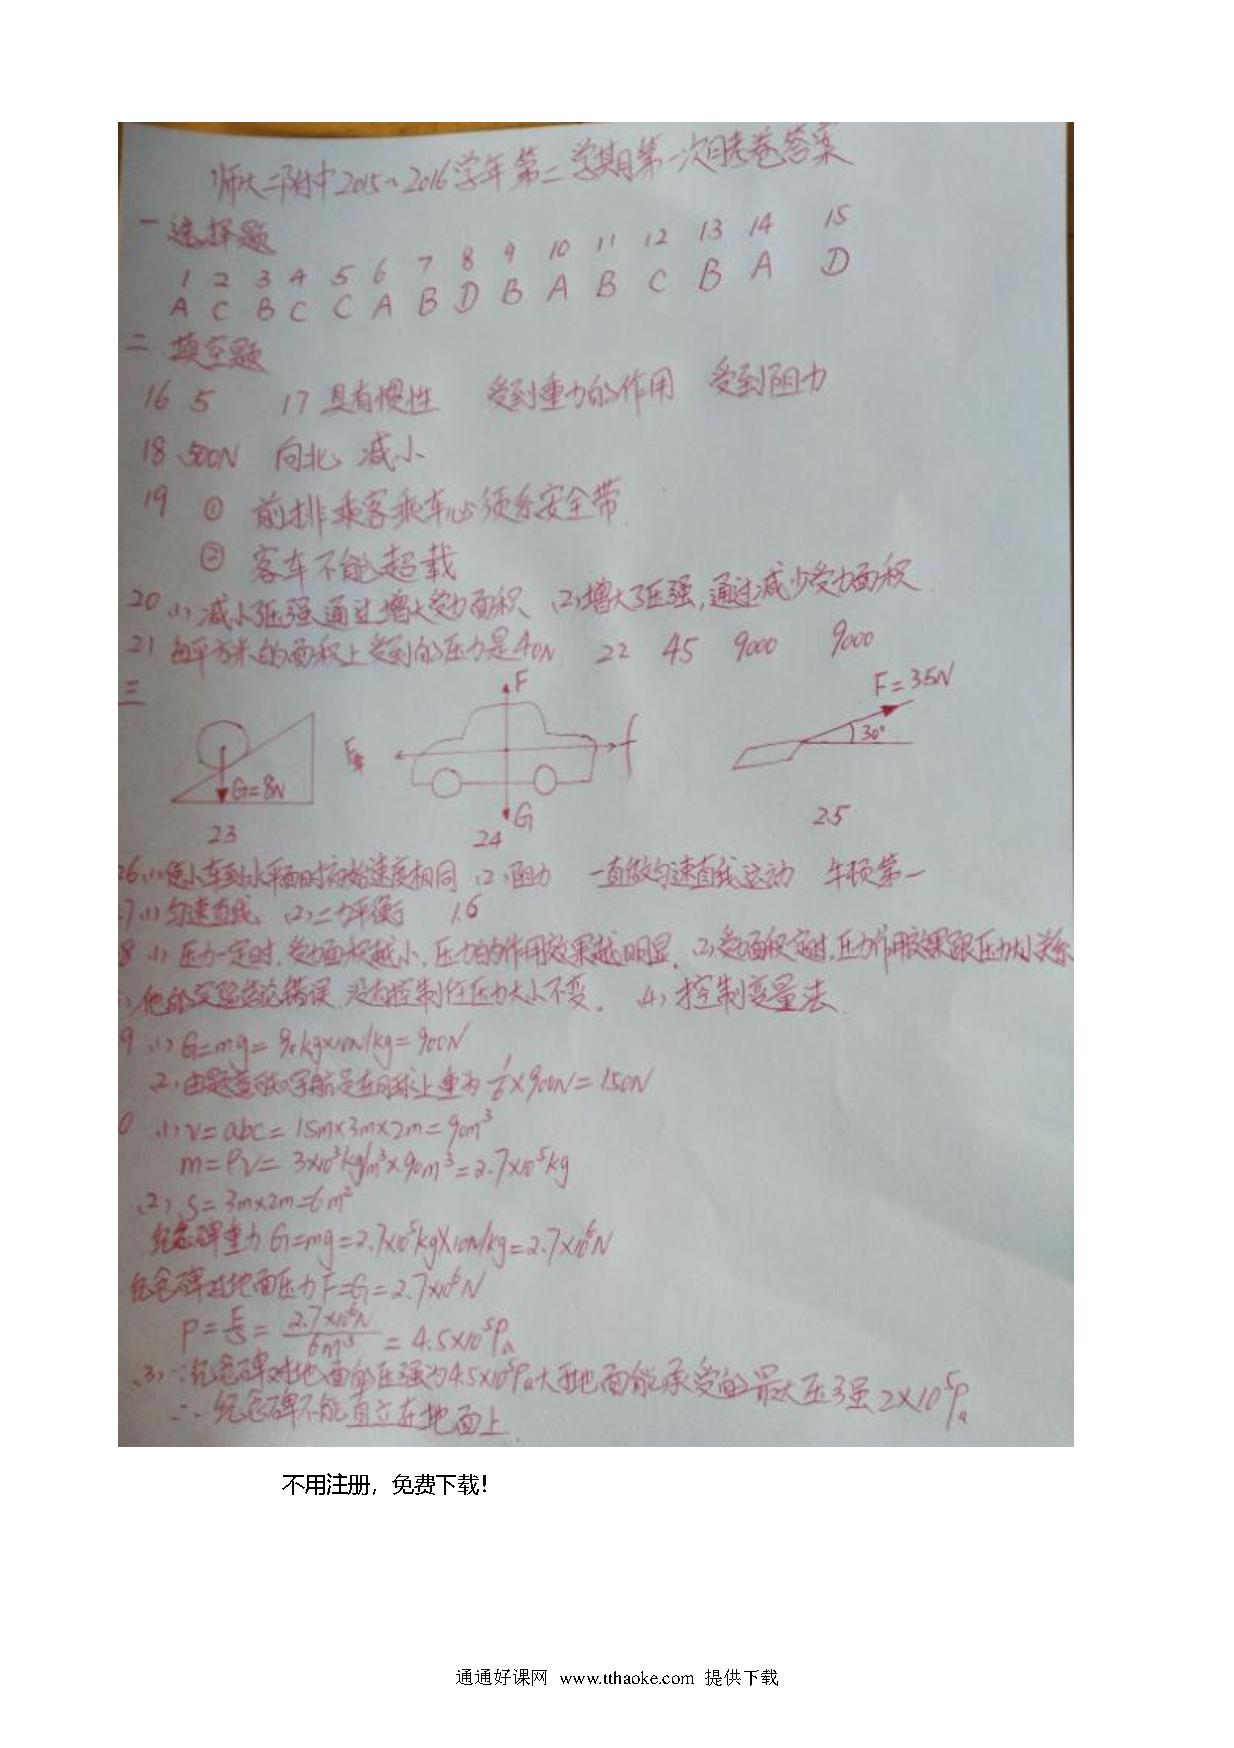 师大二附中2015~2016学年第二学期第一次月考卷答案
一 选择题
1 2 3 4 5 6 7 8 9 10 11 12 13 14 15
A C B C C A B D B A B C B A D
二 填空题
16 5 17 具有惯性 受到重力的作用 受到阻力
18 500N 向北 减小
19 ① 前排乘客乘车必须系安全带
② 客车不能超载
20 (1) 减小压强,通过增大受力面积 (2) 增大压强,通过减少受力面积
21 每平方米的面积上受到的压力是40N 22 45 9000 9000
三
F F=35N
F f 30°
G=8N G
23 24 25
26 (1) 使小车到水平面时初始速度相同 (2) 阻力 一直做匀速直线运动 牛顿第一
7 (1) 匀速直线 (2) 二力平衡 1.6
8 (1) 压力一定时,受力面积越小,压力的作用效果越明显. (2) 受力面积一定时,压力作用效果跟压力大小关系
他的实验结论错误 没有控制住压力大小不变. (4) 控制变量法
9 (1) G=mg=90kg×10N/kg=900N
2. 由题意可知宇航员在月球上重为 1/6×900N=150N
0 (1) V=abc=15m×3m×2m=90m³
m=ρV=3×10³kg/m³×90m³=2.7×10⁵kg
(2) S=3m×2m=6m²
纪念碑重力 G=mg=2.7×10⁵kg×10N/kg=2.7×10⁶N
纪念碑对地面压力F=G=2.7×10⁶N
P=F/S=2.7×10⁶N/6m³=4.5×10⁵Pa
(3) ∵纪念碑对地面的压强为4.5×10⁵Pa大于地面能承受的最大压强2×10⁵Pa
∴ 纪念碑不能直立在地面上.
不用注册，免费下载!
通通好课网 www.tthaoke.com 提供下载